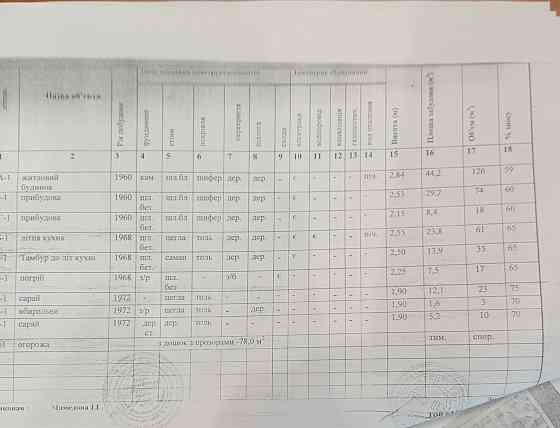 Назва об'єкта
Рік побудови
фундамент
стіни
покрівля
перекриття
підлога
сходи
електрика
водопровід
каналізація
Висота (м)
Площа забудови (м²)
Об'єм (м³)
% зносу
1 2 3 4 5 6 7 8 9 10 11 12 13 14 15 16 17 18
А-1 житловий будинок 1960 кам шл.бл шифер дер. дер. - є - - - піч. 2,84 44,2 126 59
-1 прибудова 1960 шл. бет. шл.бл шифер дер. дер. - є - - - - 2,53 29,2 74 60
-1 прибудова 1960 шл. бет. шл.бл шифер дер. дер. - є - - - - 2,15 8,4 18 60
-1 літня кухня 1968 шл. бет. цегла толь дер. дер. - є є - - піч. 2,55 23,8 61 65
-1 Тамбур до літ кухні 1968 шл. бет. саман толь дер дер. - є - - - - 2,50 13,9 35 65
-1 погріб 1968 з/р шл. бет - з/б - є - - - - - 2,25 7,5 17 65
-1 сарай 1972 - цегла толь - - - - - - - - 1,90 12,1 23 75
-1 вбиральня 1972 з/р цегла толь - дер. - - - - - - 1,90 1,6 3 70
-1 сарай 1972 дер. ст. дер. толь - - - - - - - - 1,90 5,2 10 70
огорожа з дошок з прозорами -78,0 м² тим. спор.